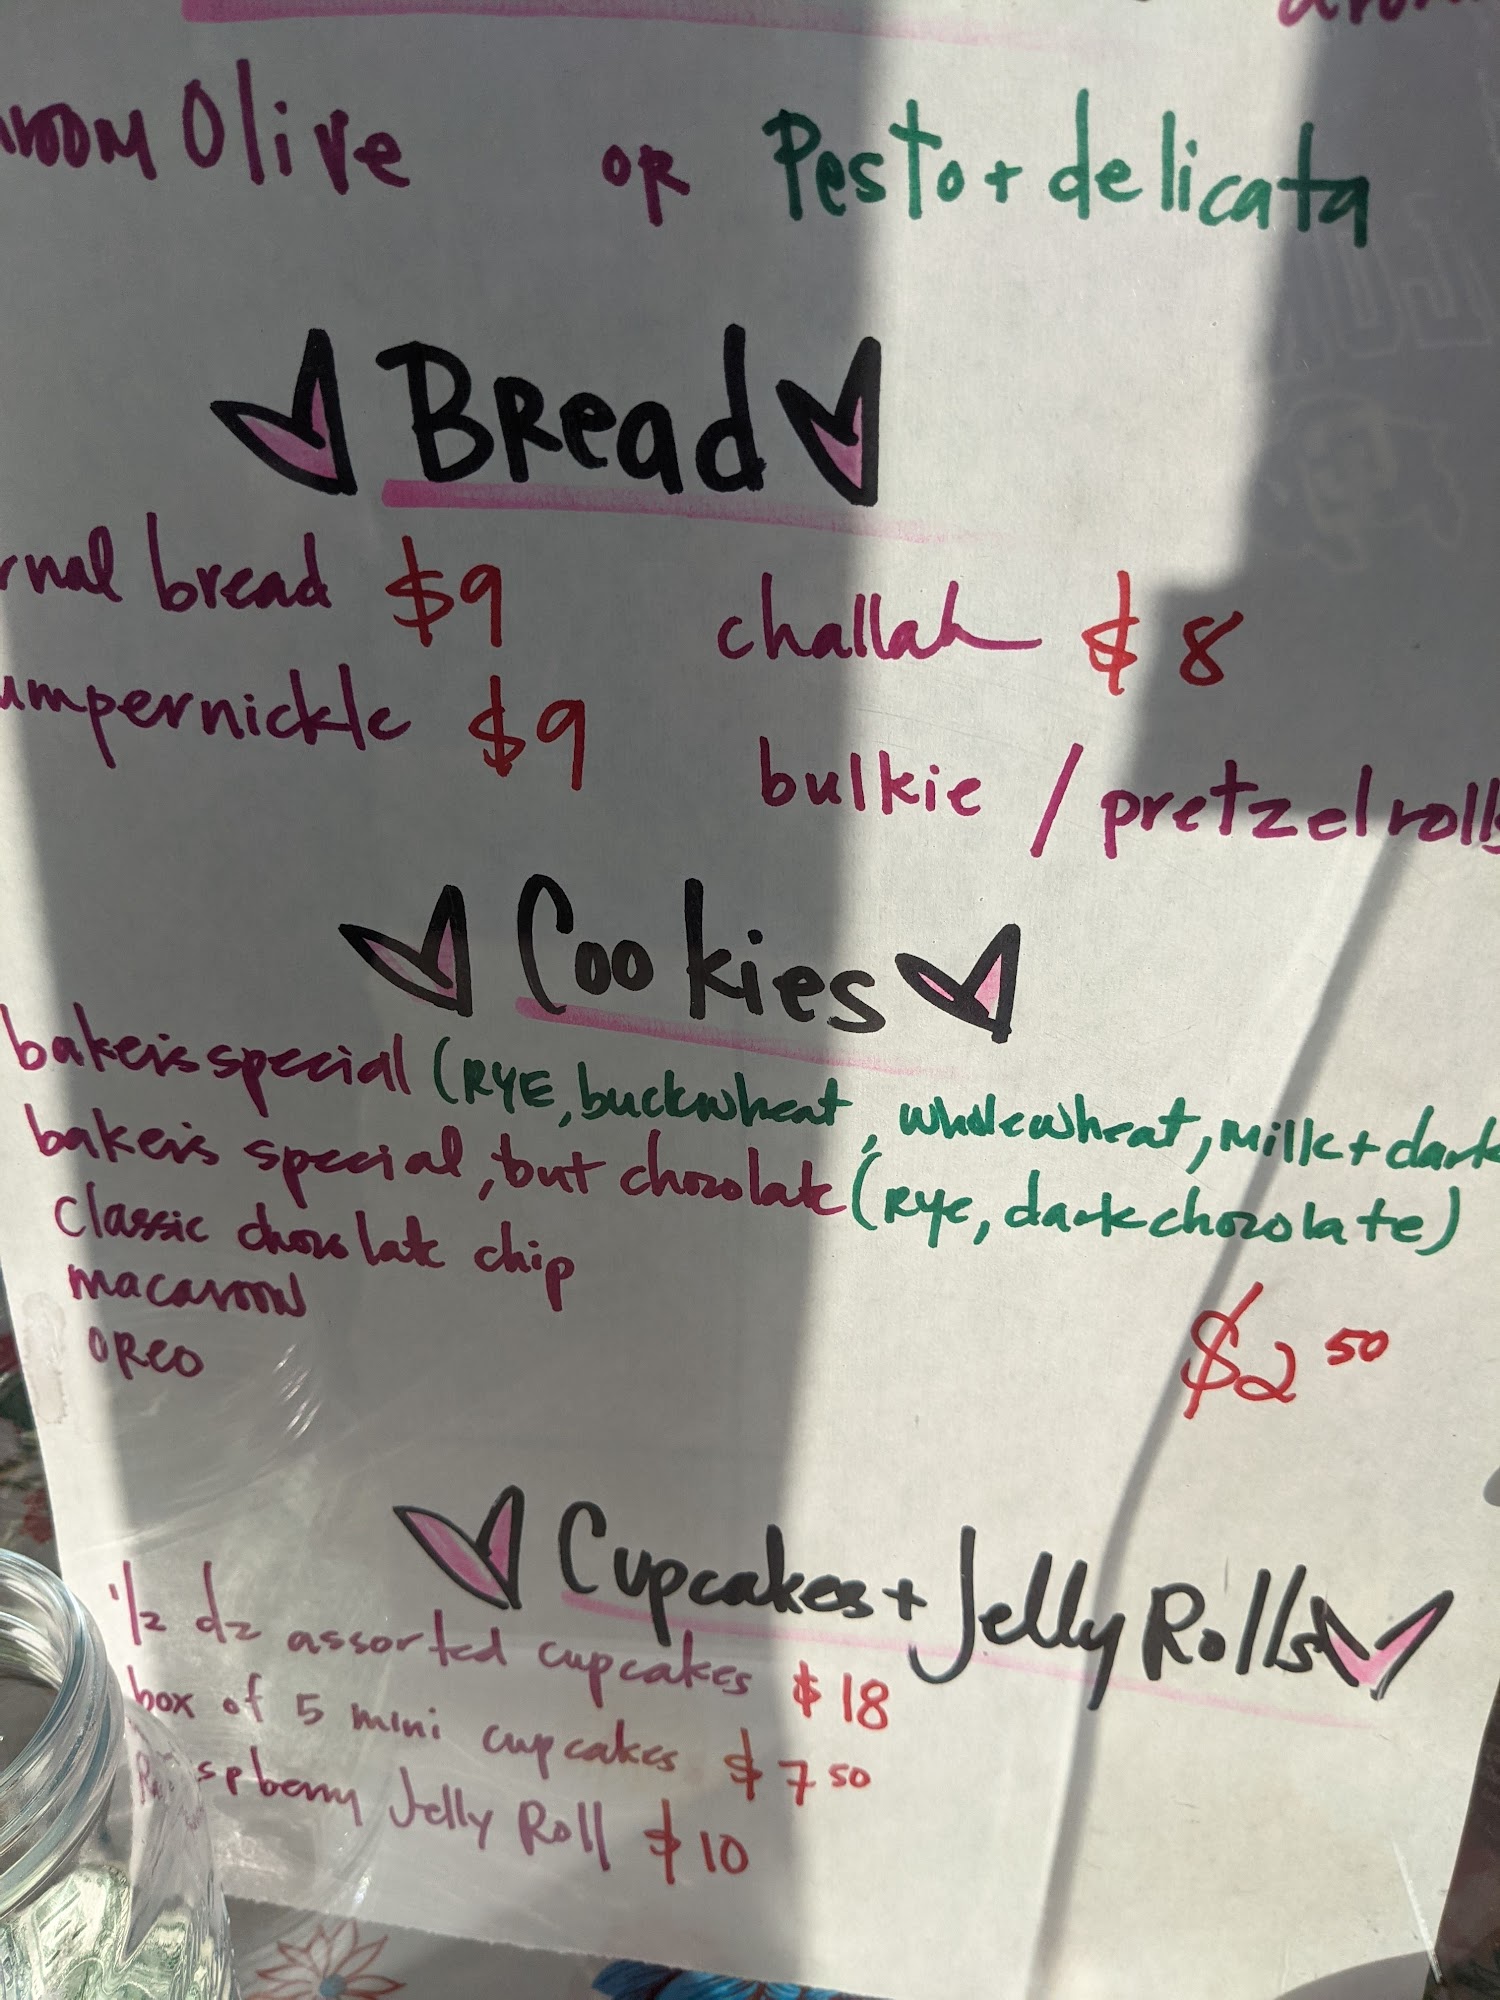 Olive or Pesto + delicata
Bread
bread $9 challah $8
umpernickle $9 bulkie / pretzel rolls
Cookies
baker's special (RYE, buckwheat, wholewheat, milk + dark
baker's special, but chocolate (Rye, dark chocolate)
classic chocolate chip
macaroon
OREO
$2 50
Cupcakes + Jelly Rolls
1/2 dz assorted cupcakes $18
box of 5 mini cupcakes $7 50
Raspberry Jelly Roll $10